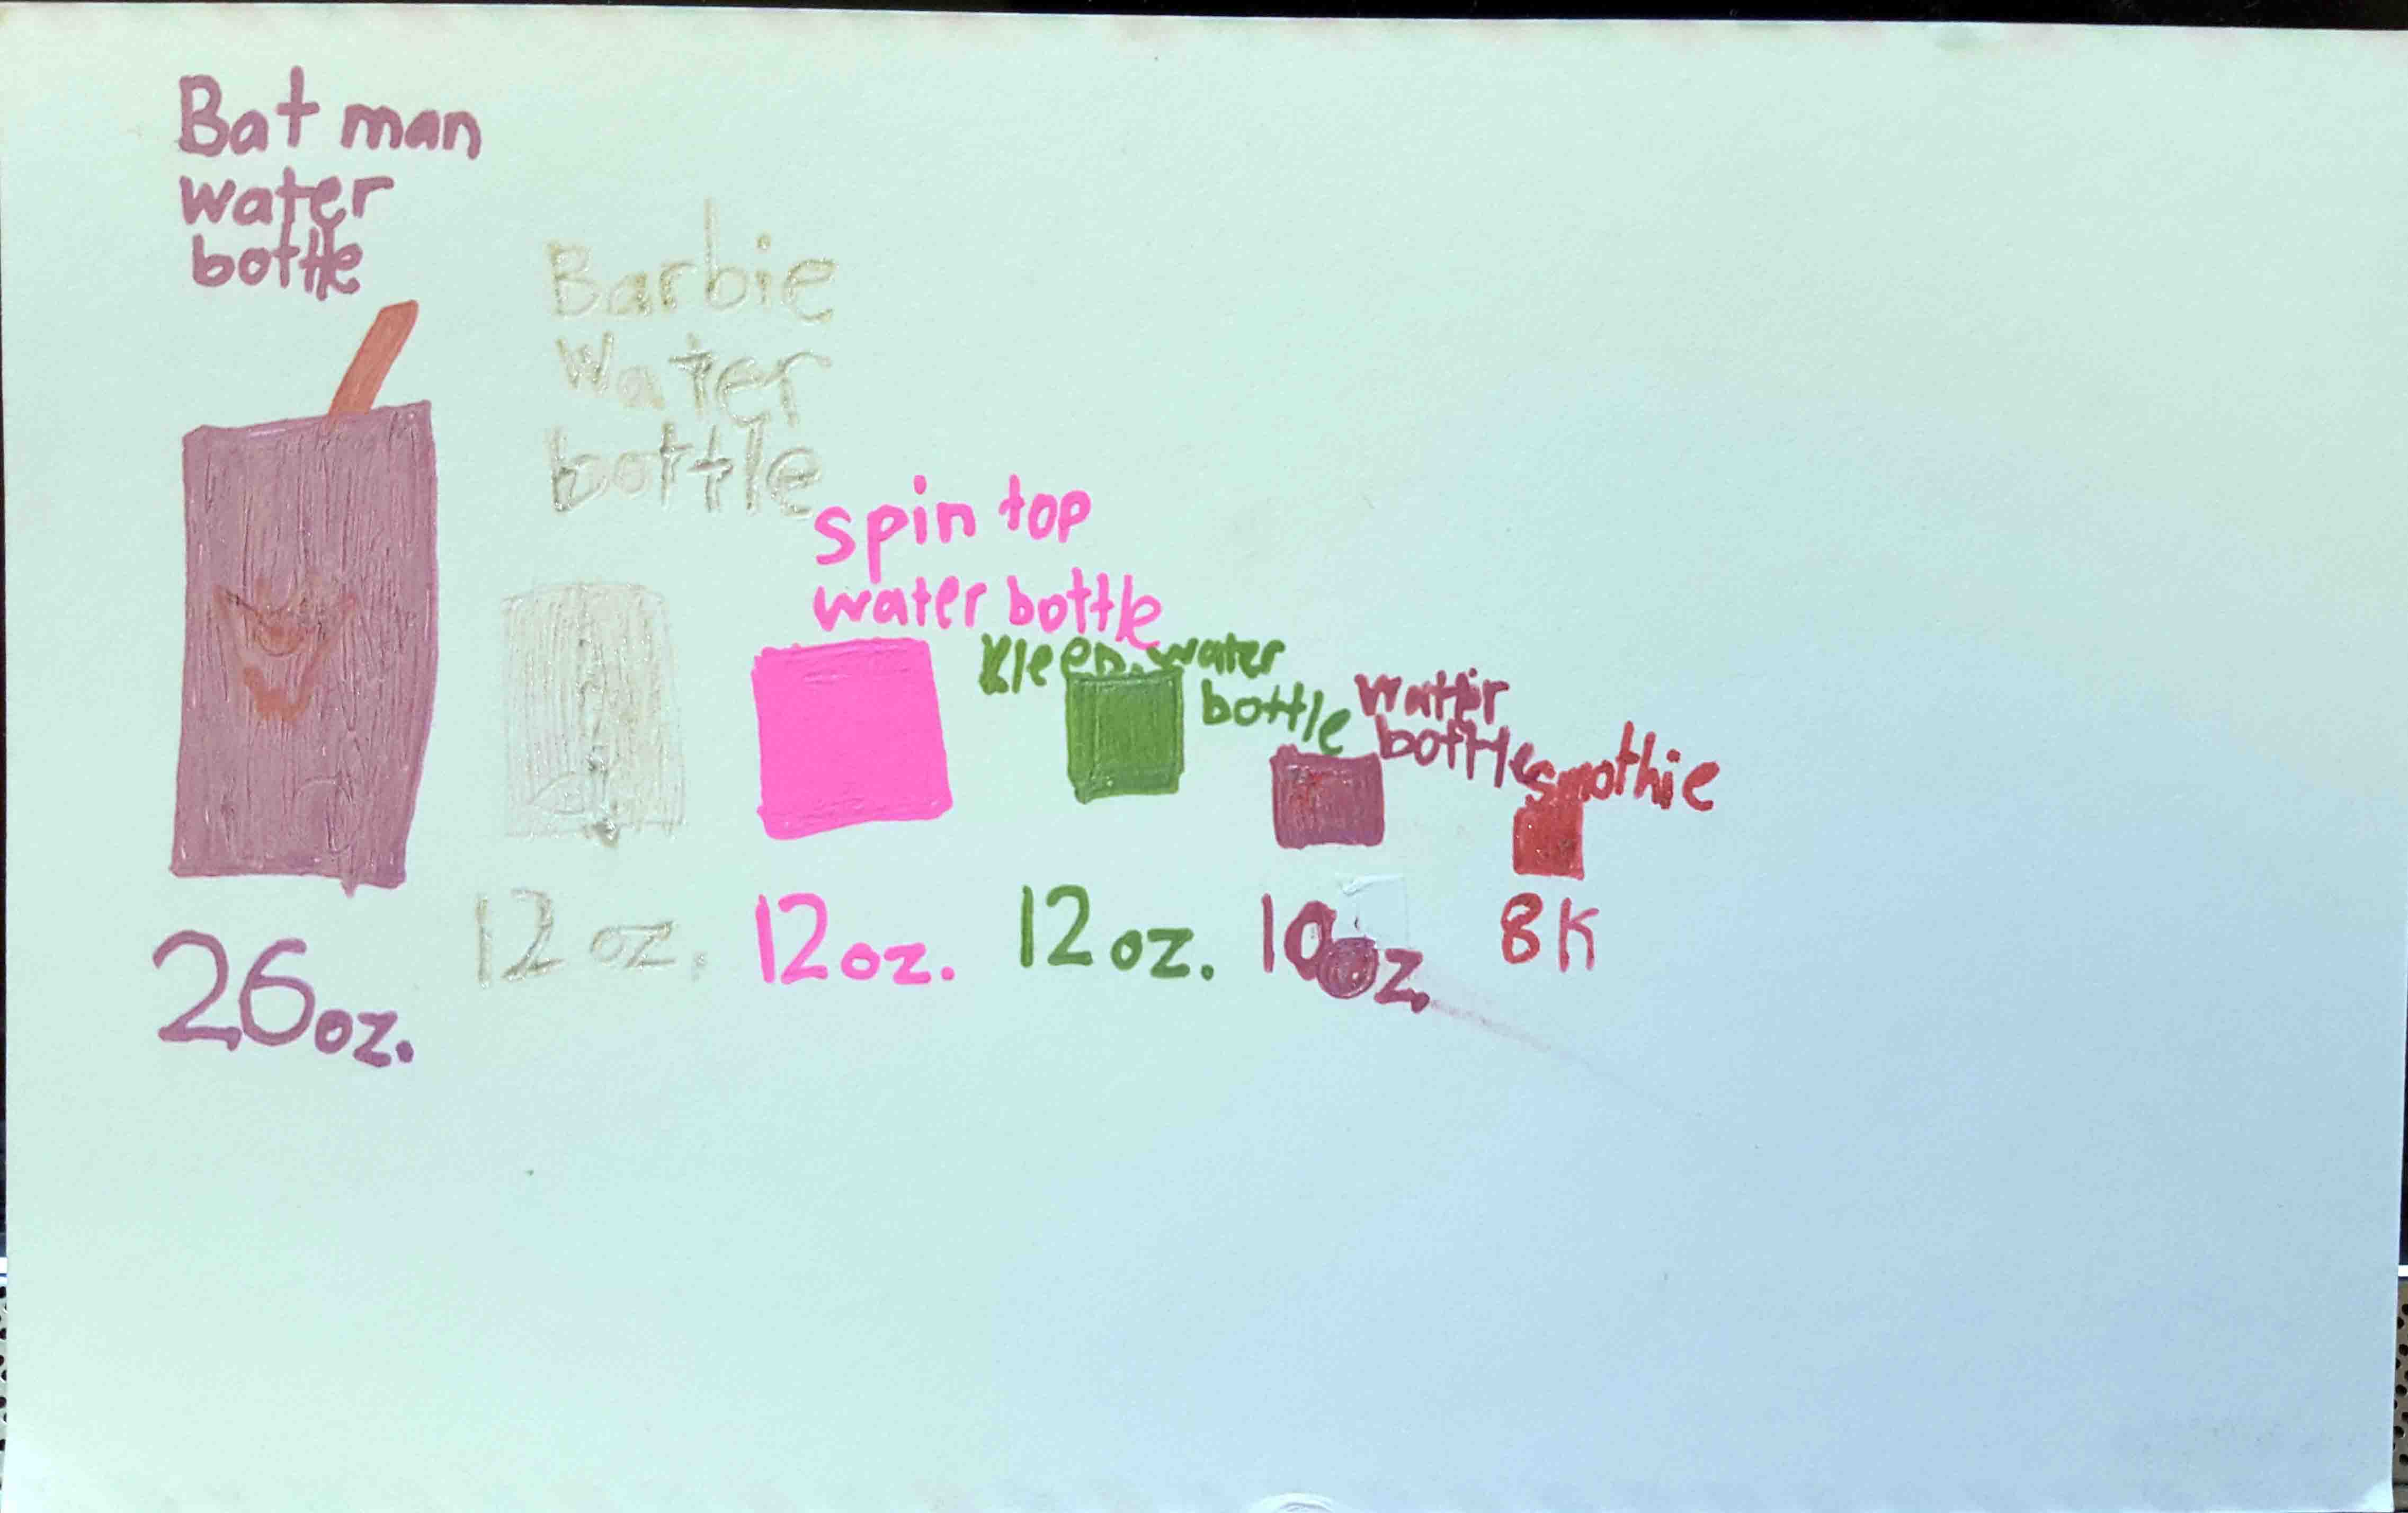 Bat man
water
bottle
Barbie
Water
bottle
spin top
water bottle
Kleen water
bottle
water
bottle
smothie
26oz.
12 oz.
12oz.
12 oz.
10oz.
8K